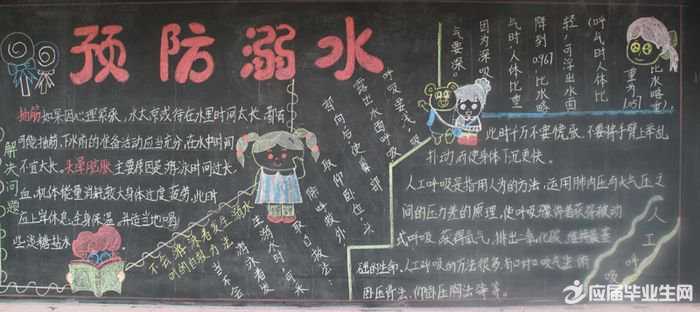 预防溺水
抽筋 如果因心理紧张，水太凉或待在水里时间太长，都有
可能抽筋。下水前的准备活动应当充分，在水中时间
不宜太长。头晕脑胀 主要原因是游泳时间过长
血，机体能量消耗较大身体过度疲劳，此时
应上岸休息，全身保温，并适当喝
些淡糖盐水
解决问题
不会游泳者发生溺水
时的自救方法
当不会
游泳者发
生溺水时可采
取自救法：
取仰卧位，头
部向后，使鼻部
露出水面呼吸
呼吸要浅，吸
气要深。
因为深吸
气时，人体比重
降到0.967，比水略
轻，可浮出水面
（呼气时人体比
重为1.057
比水略重）
此时千万不要慌张，不要将手臂上举乱
扑动，而使身体下沉更快。
人工呼吸
人工呼吸是指用人为的方法，运用肺内压与大气压之
间的压力差的原理，使呼吸骤停者获得被动
式呼吸，获得氧气，排出二氧化碳，维持最基
础的生命。人工呼吸的方法很多，有口对口吹气法、俯
卧压背法、仰卧压胸法等等。
应届毕业生网